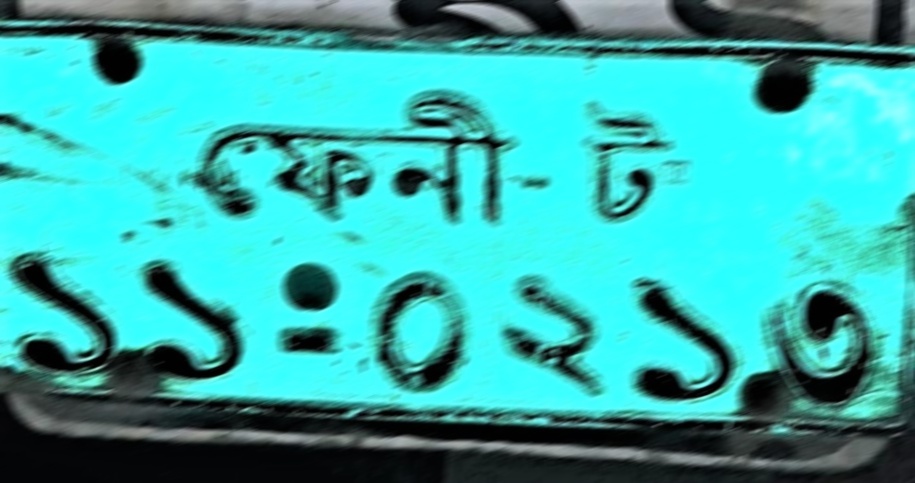 ফেনী-ট
১১-০২১৩